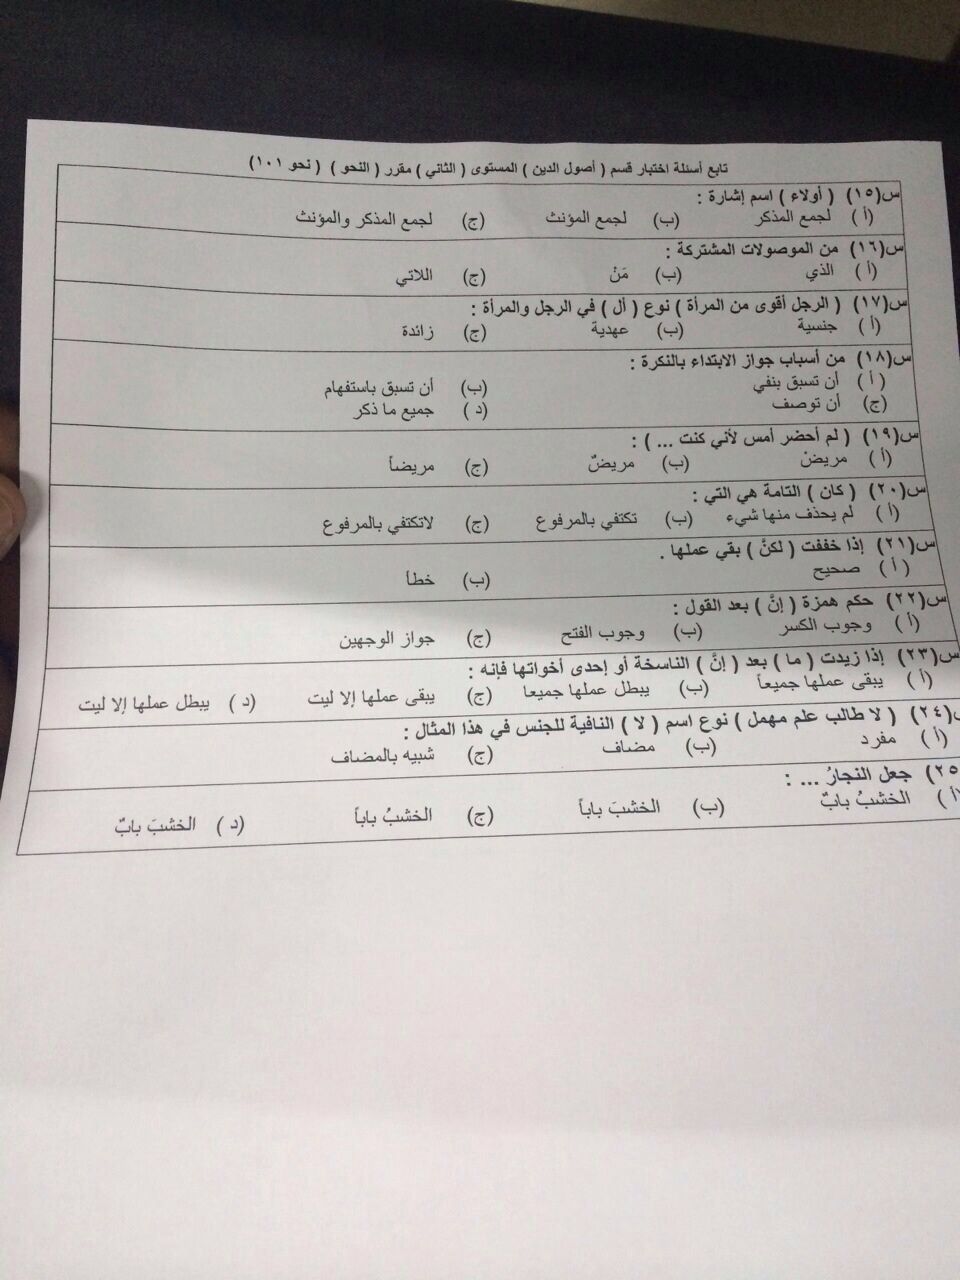 تابع أسئلة اختبار قسم ( أصول الدين ) المستوى ( الثاني ) مقرر ( النحو ) ( نحو ١٠١)
س(١٥) ( أولاء ) اسم إشارة :
(أ ) لجمع المذكر (ب) لجمع المؤنث (ج) لجمع المذكر والمؤنث
س(١٦) من الموصولات المشتركة :
(أ ) الذي (ب) مَنْ (ج) اللاتي
س(١٧) ( الرجل أقوى من المرأة ) نوع ( أل ) في الرجل والمرأة :
(أ ) جنسية (ب) عهدية (ج) زائدة
س(١٨) من أسباب جواز الابتداء بالنكرة :
( أ ) أن تسبق بنفي (ب) أن تسبق باستفهام
(ج) أن توصف (د ) جميع ما ذكر
س(١٩) ( لم أحضر أمس لأني كنت ... ) :
(أ ) مريضْ (ب) مريضٌ (ج) مريضاً
س(٢٠) ( كان ) التامة هي التي :
(أ ) لم يحذف منها شيء (ب) تكتفي بالمرفوع (ج) لاتكتفي بالمرفوع
س(٢١) إذا خففت ( لكنَّ ) بقي عملها .
( أ ) صحيح (ب) خطأ
س(٢٢) حكم همزة ( إنَّ ) بعد القول :
(أ ) وجوب الكسر (ب) وجوب الفتح (ج) جواز الوجهين
س(٢٣) إذا زيدت ( ما ) بعد ( إنَّ ) الناسخة أو إحدى أخواتها فإنه :
(أ ) يبقى عملها جميعاً (ب) يبطل عملها جميعا (ج) يبقى عملها إلا ليت (د ) يبطل عملها إلا ليت
س(٢٤) ( لا طالب علم مهمل ) نوع اسم ( لا ) النافية للجنس في هذا المثال :
(أ ) مفرد (ب) مضاف (ج) شبيه بالمضاف
٢٥) جعل النجارُ ... :
(أ ) الخشبُ بابٌ (ب) الخشبَ باباً (ج) الخشبُ باباً (د ) الخشبَ بابٌ